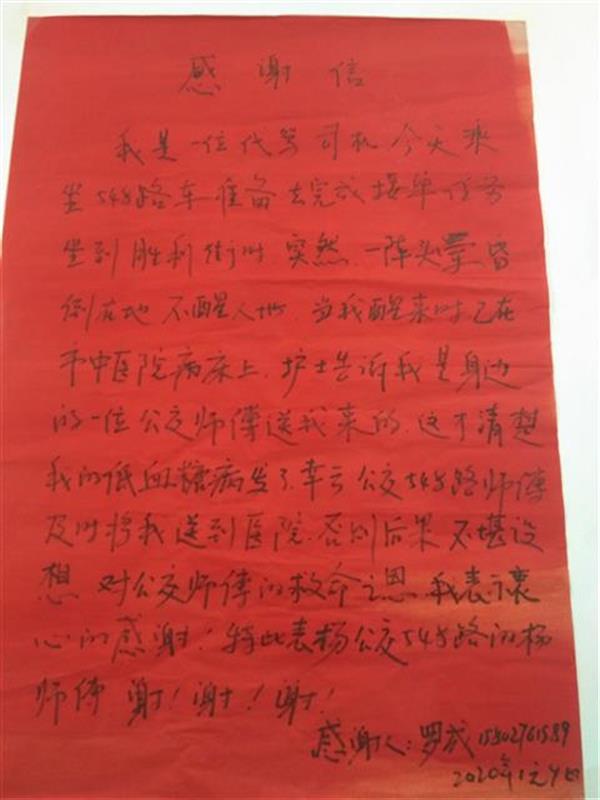 感谢信
我是一位代驾司机今天乘
坐548路车准备去完成接单任务
坐到胜利街时突然一阵头晕昏
倒在地不醒人地.当我醒来时已在
市中医院病床上.护士告诉我是身边
的一位公交师傅送我来的.这才清楚
我的低血糖病发了.幸亏公交548路师傅
及时将我送到医院.否则后果不堪设
想 对公交师傅的救命之恩.我表示衷
心的感谢!特此表杨公交548路的杨
师傅 谢!谢!谢!
感谢人:罗成
2020年1元